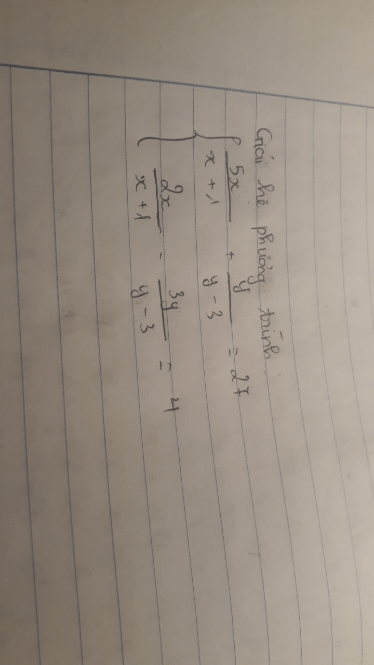 Giải hệ phương trình:
{ 5x/(x+1) + y/(y-3) = 27
{ 2x/(x+1) - 3y/(y-3) = 4